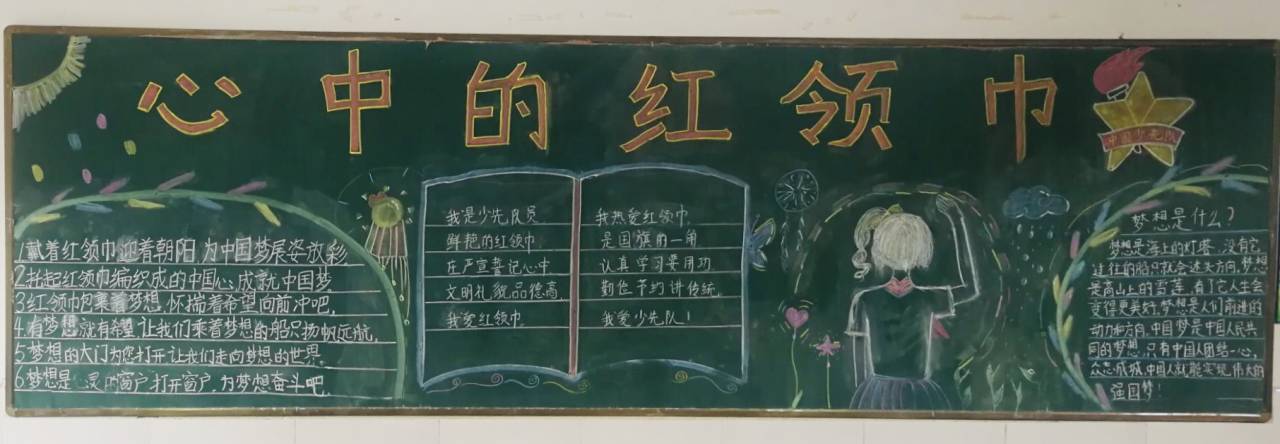 心中的红领巾
中国少先队
1.戴着红领巾迎着朝阳,为中国梦展姿放彩
2.挂起红领巾编织成的中国心,成就中国梦
3.红领巾包裹着梦想,怀揣着希望向前冲吧,
4.有梦想就有翅 让我们乘着梦想的船只扬帆远航,
5.梦想的大门为您打开让我们走向梦想的世界.
6.梦想是心灵的窗户,打开窗户,为梦想奋斗吧,
我是少先队员
鲜艳的红领巾
庄严宣誓记心中
文明礼貌品德高
我爱红领巾
我热爱红领巾
是国旗的一角
认真学习要用功
勤俭节约讲传统
我爱少先队!
梦想是什么?
梦想是海上的灯塔,没有它,
过往的船只就会迷失方向,梦想
是高山上的雪莲,有了它人生会
变得更美好,梦想是人们前进的
动力和方向,中国梦是中国人民共
同的梦想,只有中国人团结一心,
众志成城,中国人就能实现伟大的
强国梦!